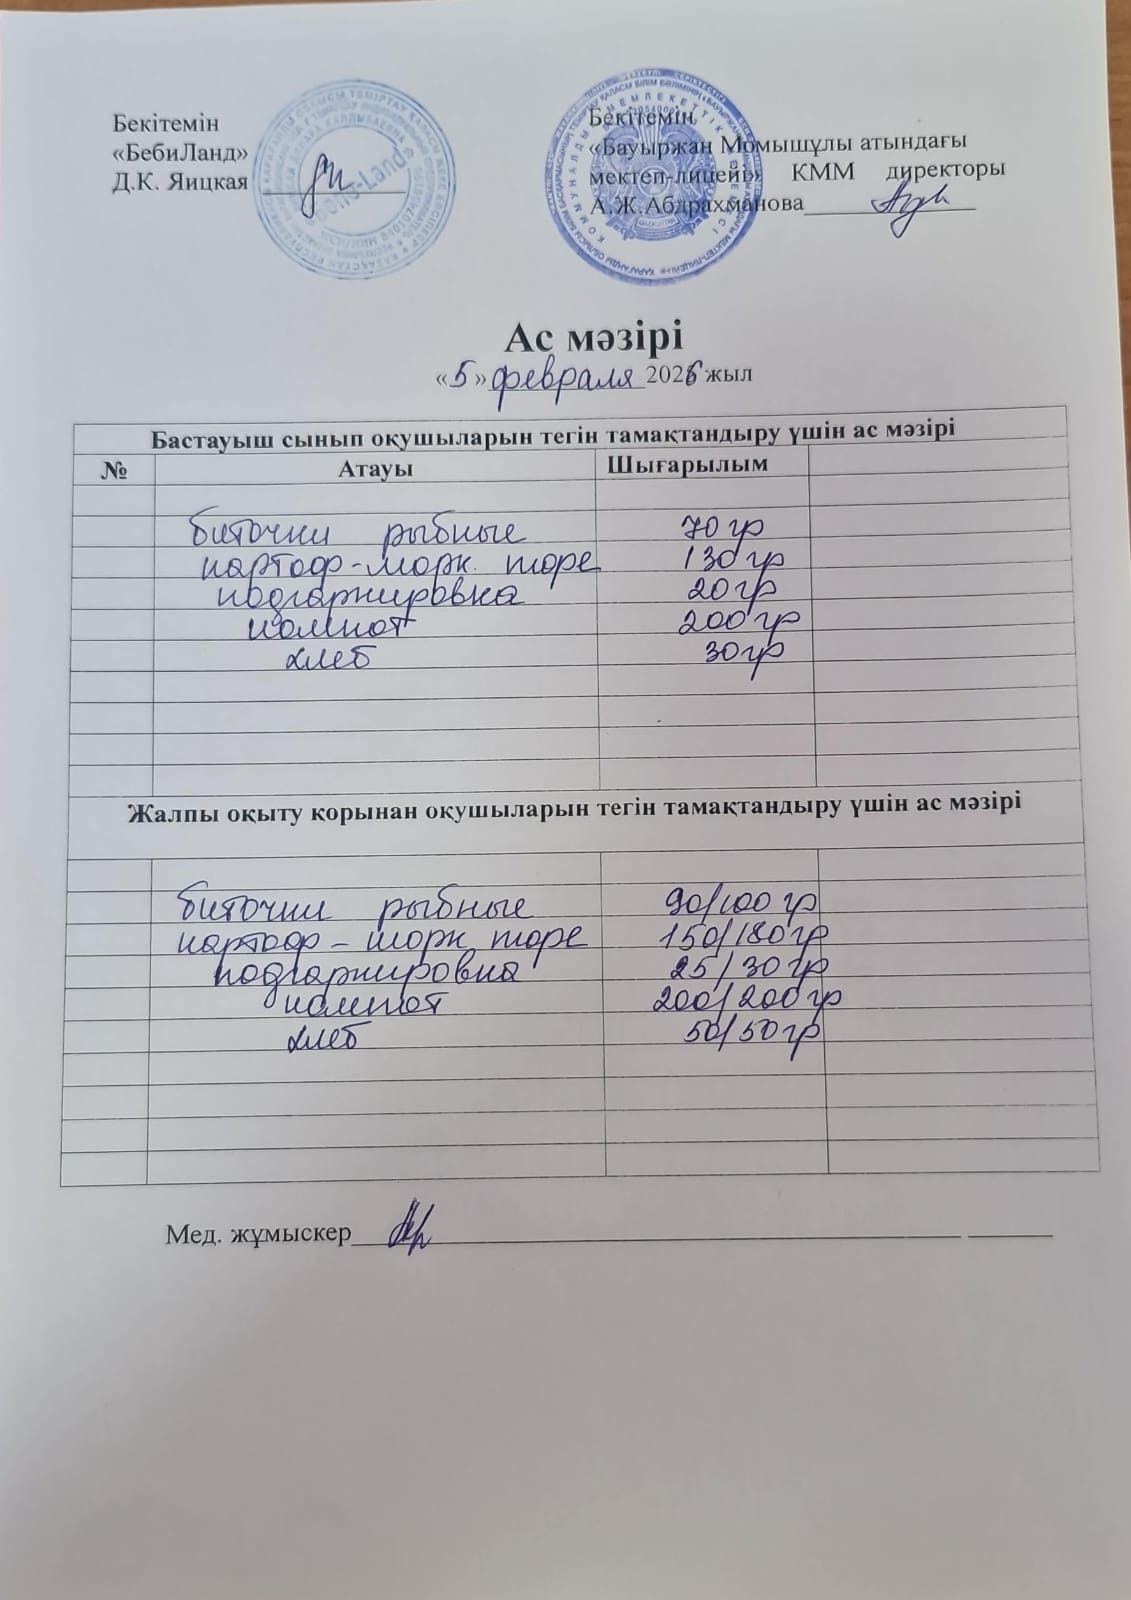 Бекітемін
«БебиЛанд»
Д.К. Яицкая
Бекітемін
«Бауыржан Момышұлы атындағы
мектеп-лицейі» КММ директоры
А.Ж.Абдрахманова
Ас мәзірі
«5» февраля 2026 жыл
Бастауыш сынып оқушыларын тегін тамақтандыру үшін ас мәзірі
№ Атауы Шығарылым
биточки рыбные 70 гр
картоф-морк. пюре 130 гр
подгарнировка 20 гр
компот 200 гр
хлеб 30 гр
Жалпы оқыту қорынан оқушыларын тегін тамақтандыру үшін ас мәзірі
биточки рыбные 90/100 гр
картоф - морк пюре 150/180 гр
подгарнировка 25/30 гр
компот 200/200 гр
хлеб 50/50 гр
Мед. жұмыскер